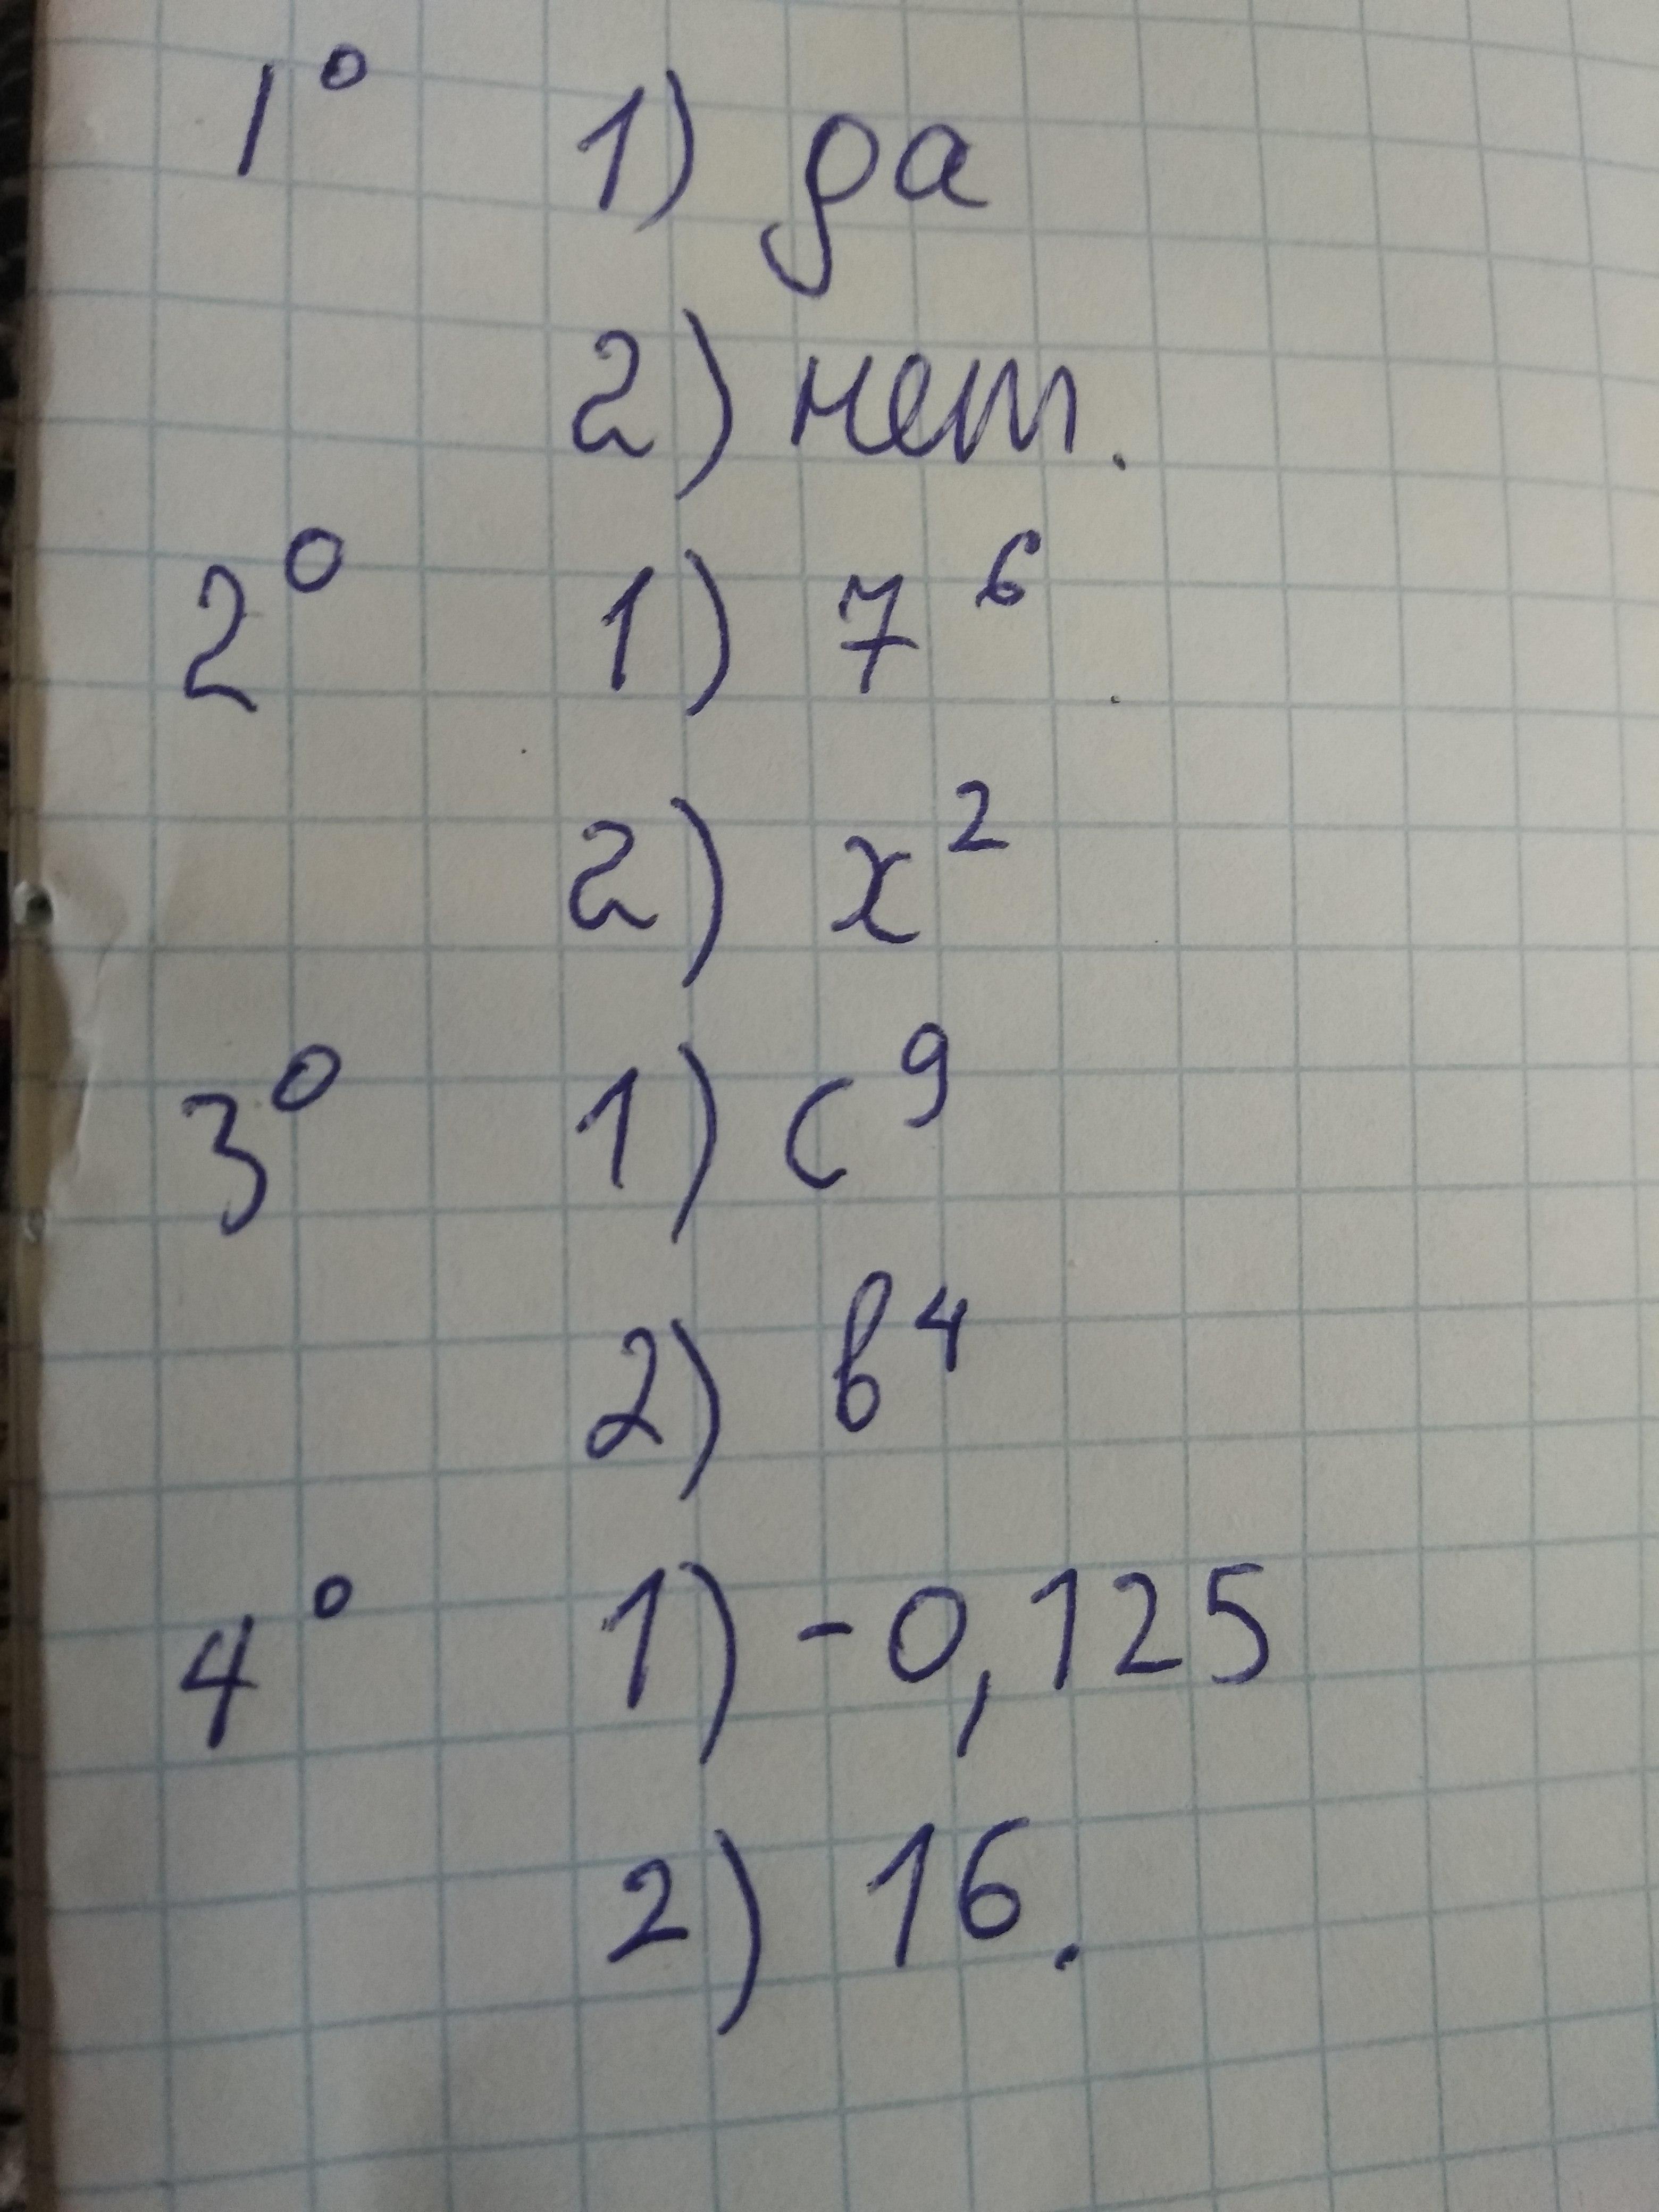 1° 1) да
2) нет.
2° 1) 7⁶
2) x²
3° 1) c⁹
2) b⁴
4° 1) -0,125
2) 16.